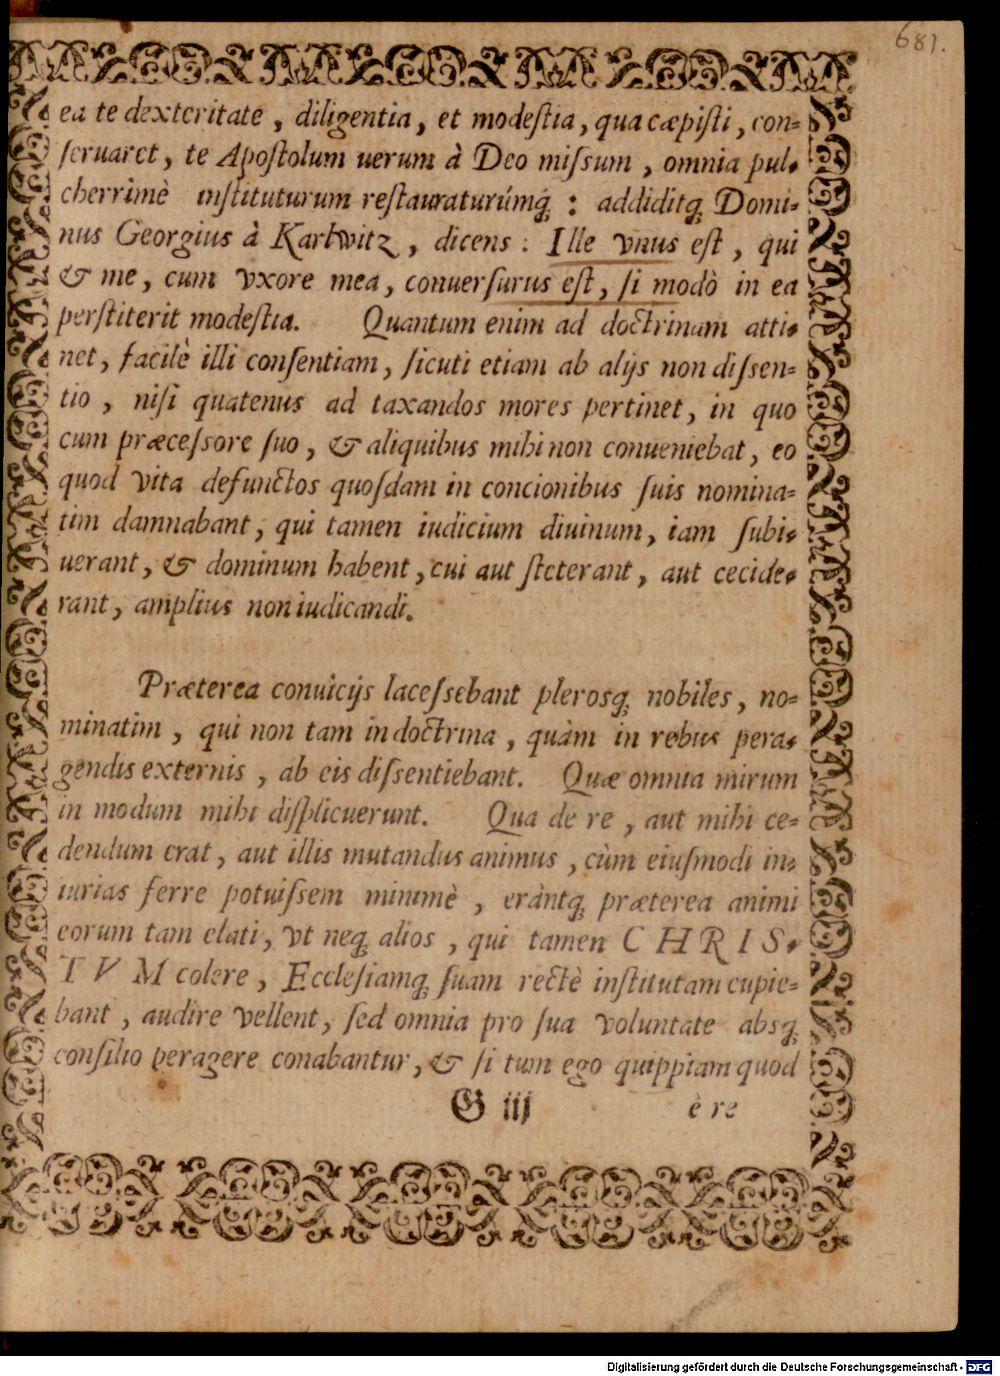 681.
ea te dexteritate, diligentia, et modeſtia, qua cæpiſti, con⸗
ſeruaret, te Apoſtolum uerum à Deo miſsum, omnia pul⸗
cherrimè inſtituturum reſtauraturúmq́; : addiditq; Domi⸗
nus Georgius à Karlwitz, dicens: Ille vnus eſt, qui
& me, cum vxore mea, conuerſurus eſt, ſi modò in ea
perſtiterit modeſtia. Quantum enim ad doctrinam atti⸗
net, facilè illi conſentiam, ſicuti etiam ab alijs non diſsen⸗
tio, niſi quatenus ad taxandos mores pertinet, in quo
cum præceſsore ſuo, & aliquibus mihi non conueniebat, eo
quod vita defunctos quoſdam in concionibus ſuis nomina⸗
tim damnabant, qui tamen iudicium diuinum, iam ſubi⸗
uerant, & dominum habent, cui aut ſteterant, aut cecide⸗
rant, amplius non iudicandi.
Præterea conuicijs laceſsebant plerosq; nobiles, no⸗
minatim, qui non tam in doctrina, quàm in rebus pera⸗
gendis externis, ab eis diſsentiebant. Quæ omnia mirum
in modum mihi diſplicuerunt. Qua de re, aut mihi ce⸗
dendum erat, aut illis mutandus animus, cùm eiuſmodi in⸗
iurias ferre potuiſsem minimè, erántq; præterea animi
eorum tam elati, vt neq; alios, qui tamen CHRIS⸗
TVM colere, Eccleſiamq; ſuam rectè inſtitutam cupie⸗
bant, audire vellent, ſed omnia pro ſua voluntate absq;
conſilio peragere conabantur, & ſi tum ego quippiam quod
G iij è re
Digitalisierung gefördert durch die Deutsche Forschungsgemeinschaft - DFG